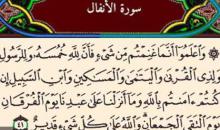 سورة الأنفال
وَٱعۡلَمُوٓاْ أَنَّمَا غَنِمۡتُم مِّن شَيۡءٖ فَأَنَّ لِلَّهِ خُمُسَهُۥ وَلِلرَّسُولِ
وَلِذِي ٱلۡقُرۡبَىٰ وَٱلۡيَتَٰمَىٰ وَٱلۡمَسَٰكِينِ وَٱبۡنِ ٱلسَّبِيلِ إِن
كُنتُمۡ ءَامَنتُم بِٱللَّهِ وَمَآ أَنزَلۡنَا عَلَىٰ عَبۡدِنَا يَوۡمَ ٱلۡفُرۡقَانِ
يَوۡمَ ٱلۡتَقَى ٱلۡجَمۡعَانِۗ وَٱللَّهُ عَلَىٰ كُلِّ شَيۡءٖ قَدِيرٌ ٤١